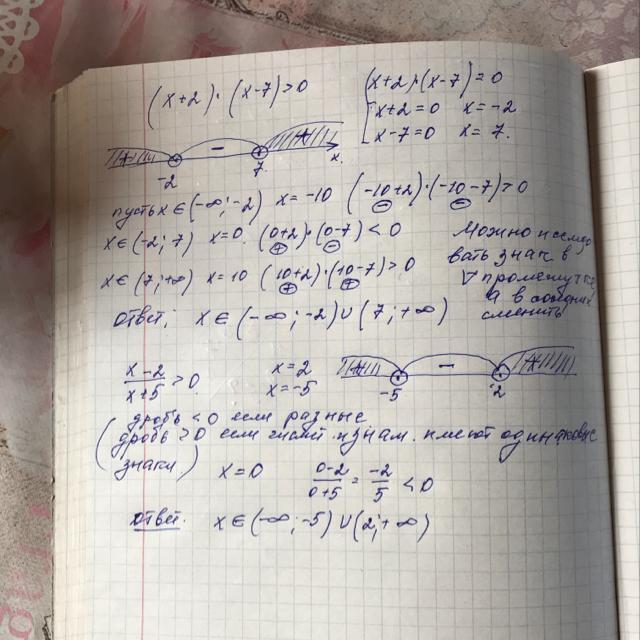 (x+2)·(x-7)>0
(x+2)·(x-7)=0
x+2=0 x=-2
x-7=0 x=7.
+ - +
-2 7 x.
пусть x∈(-∞;-2) x=-10 (-10+2)·(-10-7)>0
- -
x∈(-2;7) x=0. (0+2)·(0-7)<0
+ -
x∈(7;+∞) x=10 (10+2)·(10-7)>0
+ +
Можно исследо
вать знак в
∀ промежутке
а в соседних
сменить
ответ; x∈(-∞;-2)∪(7;+∞)
x-2/x+5>0. x=2
x=-5
+ - +
-5 2
дробь <0 если разные
(дробь >0 если числит. и знам. имеют одинаковые
знаки) x=0 0-2/0+5=-2/5<0
ответ. x∈(-∞;-5)∪(2;+∞)